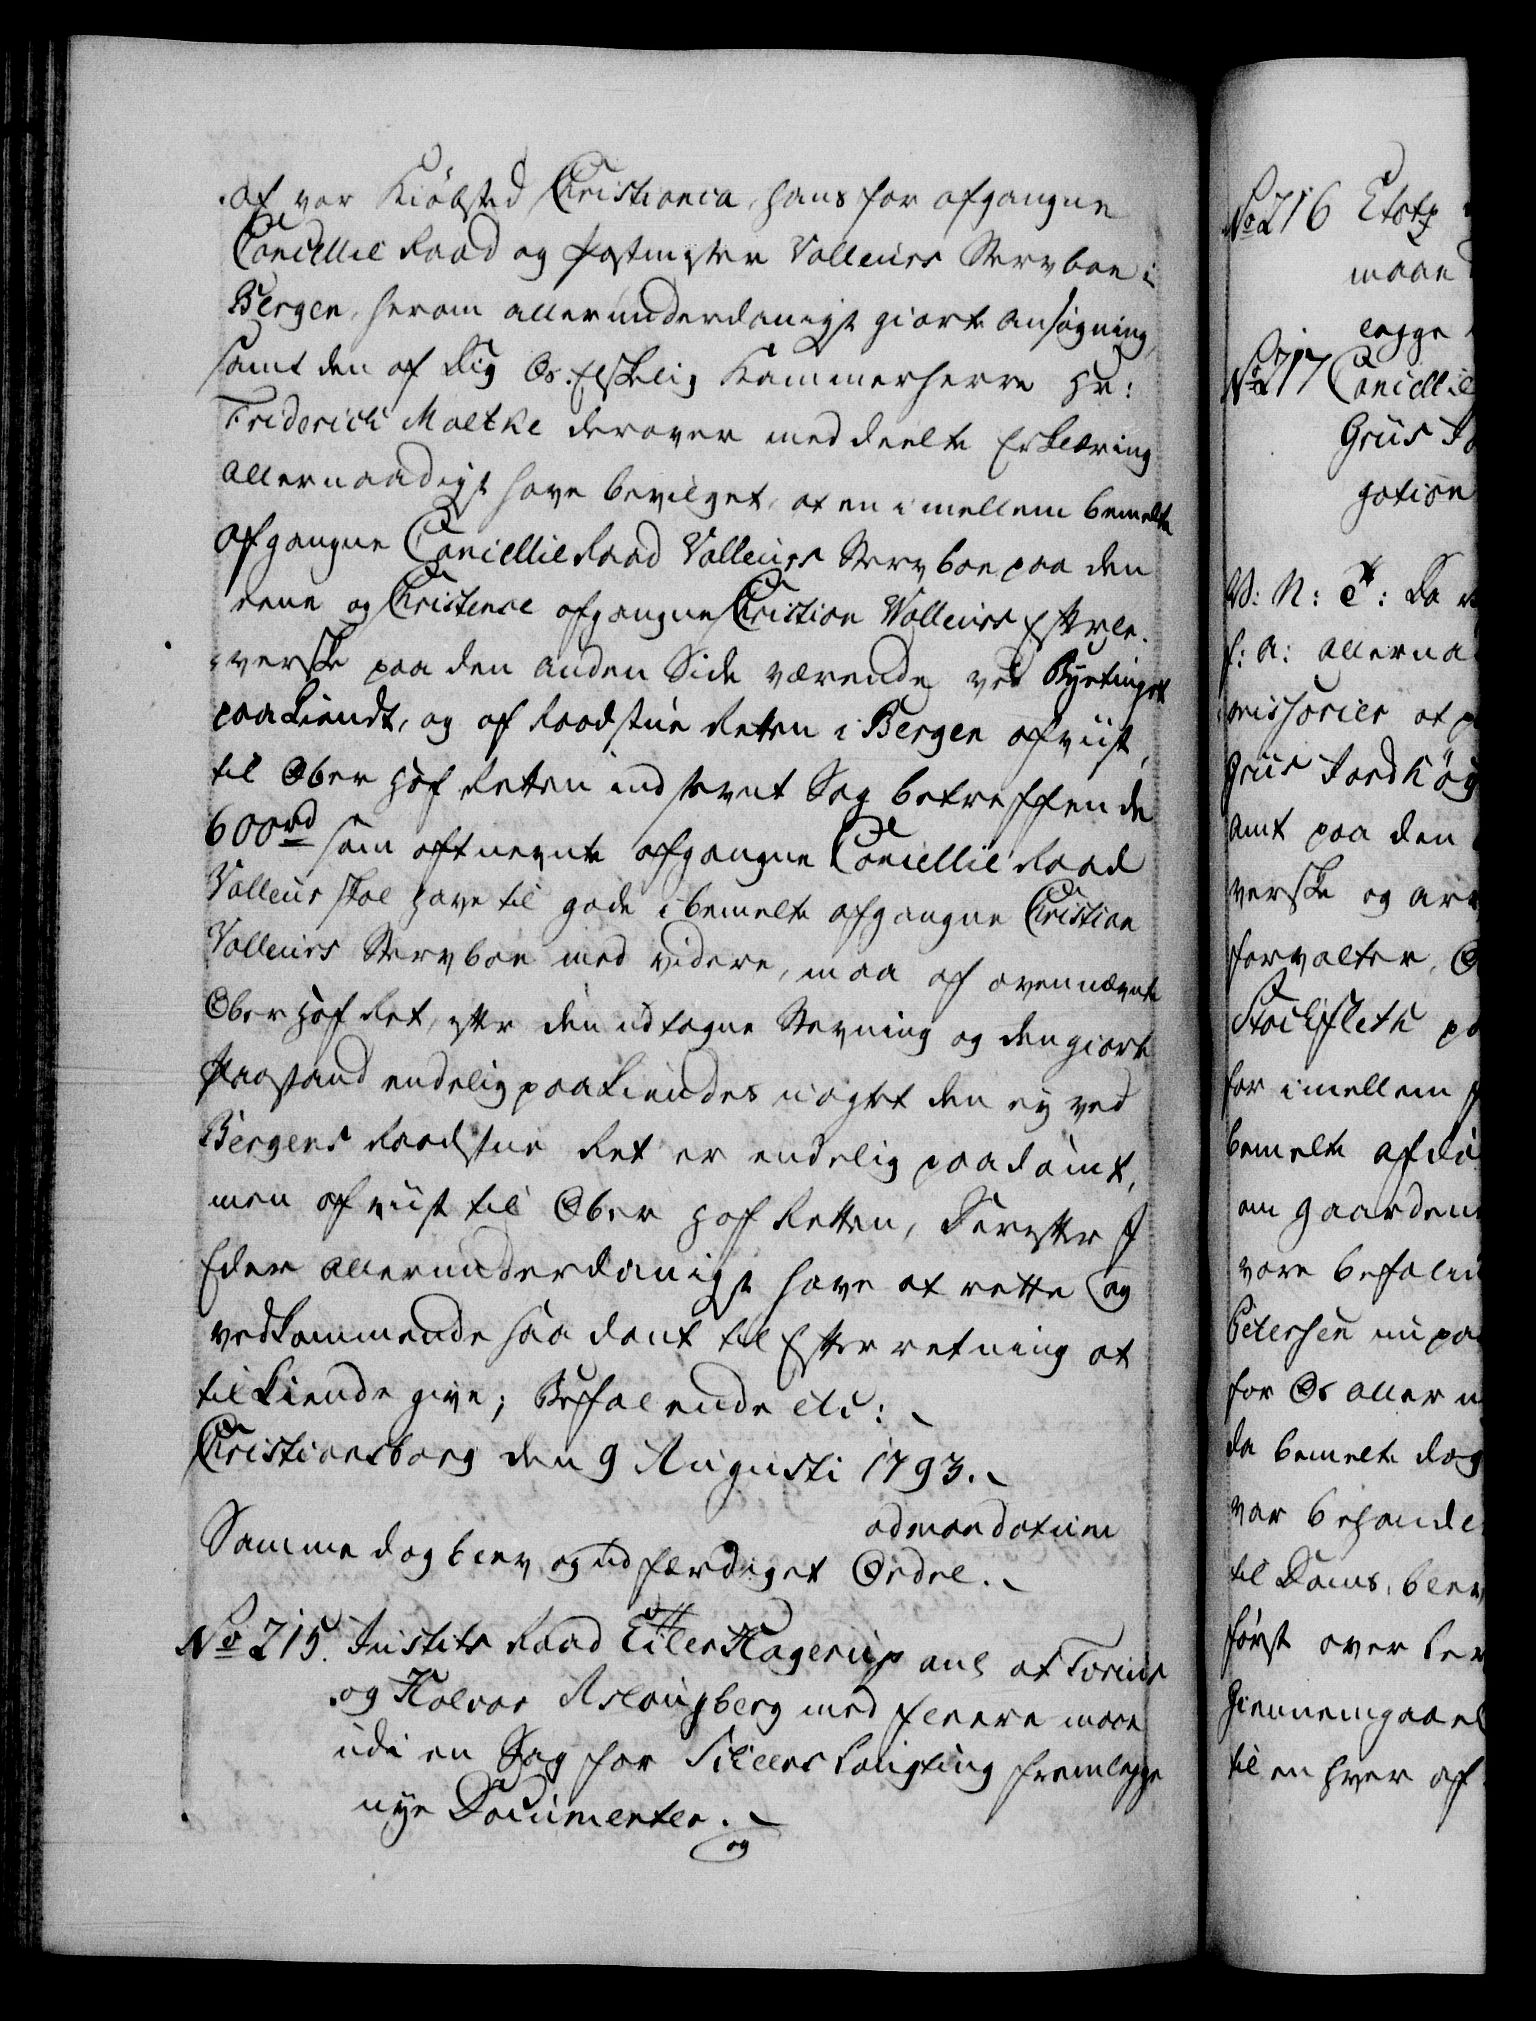 af vor Kiöbsted Christiania, hans for afgangne
Cancellie Raad og Postmester Valleurs Stervboe i
Bergen, herom allerunderdanigst giorte Ansøgning,
samt den af Dig Os. Elskelig Kammerherre Hr:
Friderich Moltke derover meddeelte Erklæring
allernaadigst have bevilget, at en imellem bemelte
afgangne Cancellie Raad Valleurs Stervboe paa den
eene og Christence afgangne Christian Valleurs Efterle-
verske paa den anden Side værende, ved Byetinget
paakiendt, og af Raadstue Retten i Bergen afviist,
til Ober Hof Retten indstevnt Sag betreffende
600 rd som oftnevnte afgangne Cancellie Raad
Valleur skal have til gode i bemelte afgangne Christian
Valleurs Stervboe med videre, maa af ovennævnte
Ober Hof Ret, efter den udtagne Stevning og den giorte
Paastand endelig paakiendes uagtet den ey ved
Bergens Raadstue Ret er endelig paadömt,
men afviist til Ober Hof Retten, Derefter I
Eder allerunderdanigst have at rette og
vedkommende saadant til Efterretning at
tilkiende give; Befalende etc:
Christiansborg den 9 Augusti 1793.
ad mandatum
Samme dag blev og udfærdiget Ordre.
No 215. Justits Raad Eiler Hagerup anl at Torius
og Halvor Aslougberg med fleere maae
udi en Sag for Tillers Laugting fremlegge
nye Documenter.
og
No 216 Etats
maae
legge
No 217 Cancellie
Griis
gation
V: N: C: Da
f: A: allerna
missorier at
Griis Jord
Amt paa den
verske og arv
forvalter, O
Stockfleth
for imellem
bemelte afdö
om gaarden
vore befaled
Petersen nu paa
for Os aller u
da bemelte dag
var behandl
til Doms, blev
först over
giennemgaae
til en hver af